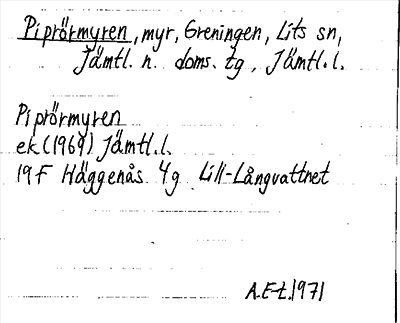 Piprörmyren, myr, Greningen, Lits sn,
Jämtl. n. doms. tg, Jämtl.l.
Piprörmyren
ek (1969) Jämtl.l.
19F Häggenås 4g Lill-Långvattnet
A.E-t.1971